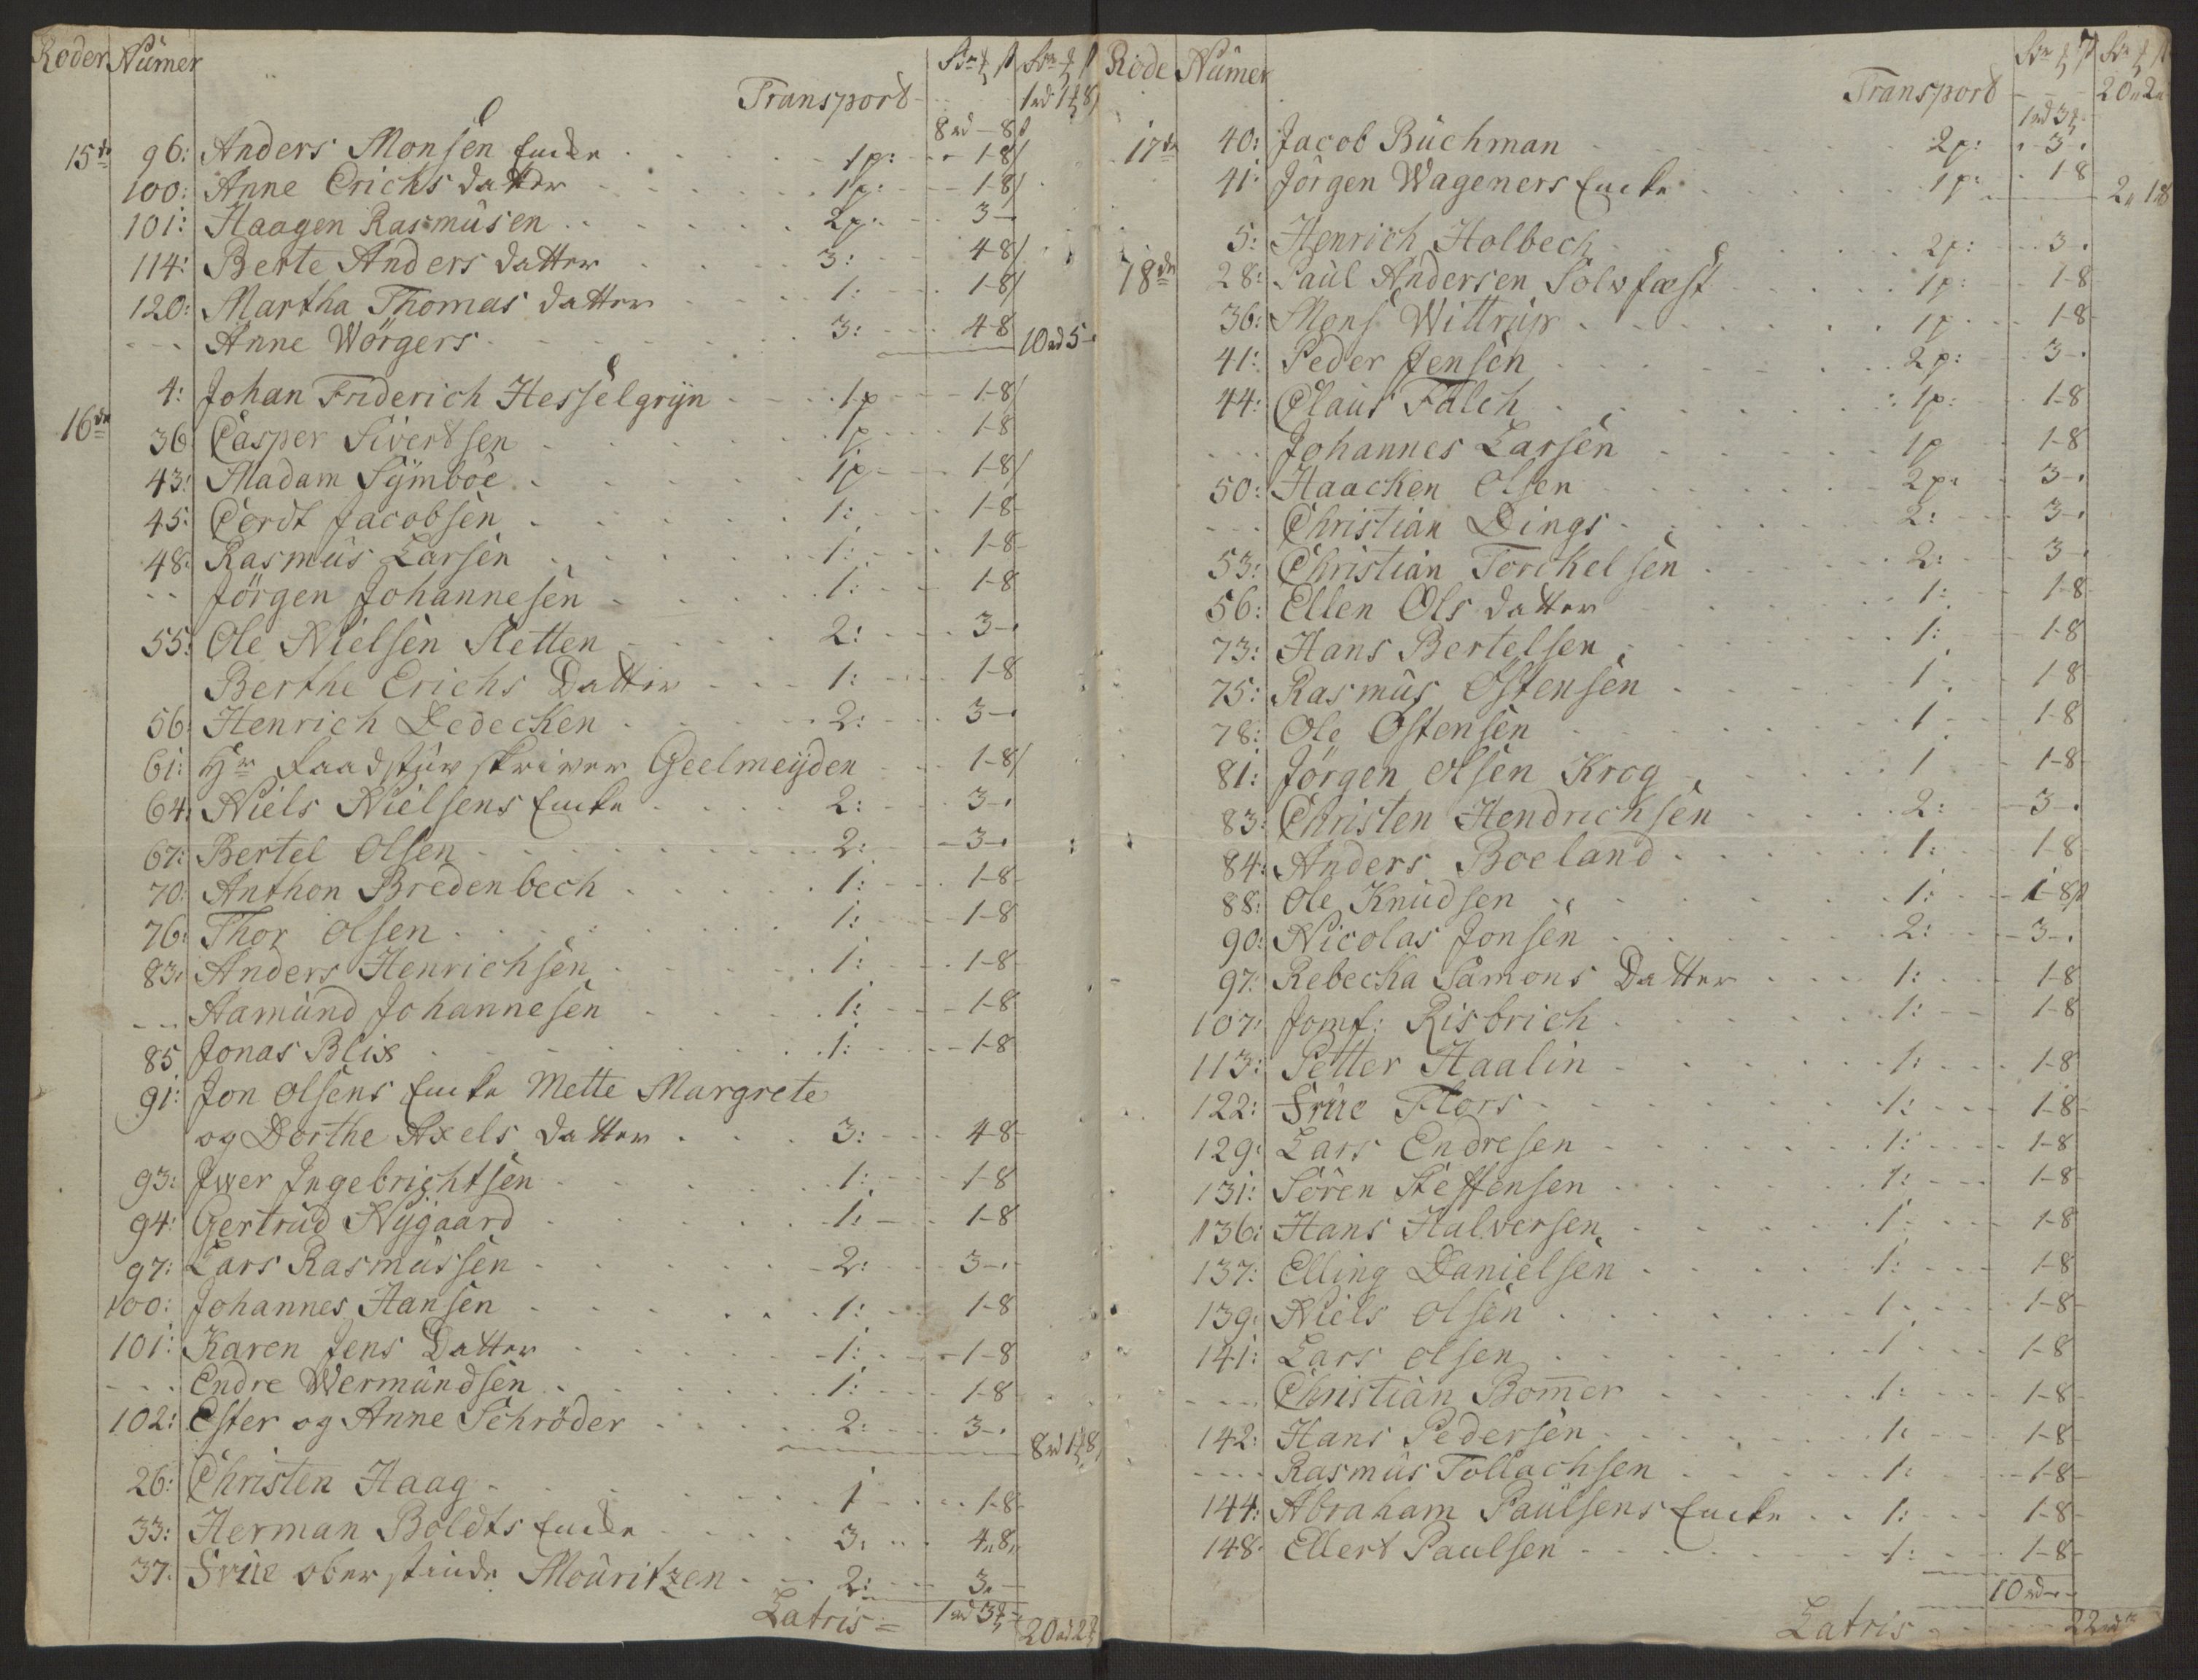 Roder Numer
Transport - 1rd 1 8
8rd - 8
15de 96: Anders Monsen Encke 1p: 1-8
100: Anne Erichs datter 1p: 1-8
101: Haagen Rasmusen 2p: 3-
114: Berte Anders datter 3: 4-8
120: Martha Thomas datter 1: 1-8
--- Anne Wörgers 3: 4-8 10rd5-
4: Johan Friderich Hesselgrijn 1p 1-8
16de 36 Casper Sivertsen 1p 1-8
43: Madam Sÿmboe 1p 1-8
45: Cordt Jacobsen 1: 1-8
48: Rasmus Larsen 1: 1-8
-- Jörgen Johannesen 1: 1-8
55: Ole Nielsen Sletten 2: 3-
Berthe Erichs Datter 1: 1-8
56: Henrich Dedecken 2: 3-
61: Hr Raadstueskriver Geelmeijden 1-8
64: Niels Nielsens Encke 2: 3-
67: Bertel Olsen 2: 3-
70: Anthon Bredenbech 1: 1-8
76: Thor Olsen 1: 1-8
83: Anders Henrichsen 1: 1-8
--- Aamund Johannesen 1: 1-8
85 Jonas Blix 1: 1-8
91: Jon Olsens Encke Mette Margrete
og Dorthe Axels datter 3: 4-8
93: Iwer Ingebrichtsen 1: 1-8
94: Gertrud Nÿgaard 1: 1-8
97: Lars Rasmussen 2: 3-
100: Johannes Hansen 1: 1-8
101: Karen Jens Datter 1: 1-8
--- Endre Wermundsen 1: 1-8
102: Ester og Anne Schröder 2: 3- 8rd 1 8
26: Christen Haag 1 1-8
33: Herman Boldts Encke 3: 4„8„
37: Frue oberstinde Mouritzen 2: 3-
Latris = 1rd 3 20rd2
Rode Numer
Transport 20„2„
1rd3
17de 40: Jacob Buchman 2p: 3-
41: Jörgen Wageners Encke 1p: 1-8 2„ 1 8
5: Henrich Holbech 2p: 3-
18de 28: Paul Andersen Solvfæst 1p: 1-8
36: Mons Wittrup 1p 1-8
41: Peder Jensen 2p: 3-
44: Claus Falch 1p: 1-8
--- Johannes Larsen 1p 1-8
50: Haacken Olsen 2p: 3-
--- Christian Dings 2: 3-
53: Christian Torckelsen 2: 3-
56: Ellen Ols datter 1: 1-8
73: Hans Bertelsen 1: 1-8
75: Rasmus Östensen 1 1-8
78: Ole Ostensen 1 1-8
81: Jörgen Olsen Krog 1 1-8
83: Christen Hendrichsen 2: 3-
84: Anders Boeland 1: 1-8
88: Ole Knudsen 1: 1-8
90: Nicolas Jonsen 2: 3-
97: Rebecka Samons Datter 1: 1-8
107: Jomf: Risbrich 1: 1-8
113: Petter Haalin 1: 1-8
122: Frue Flors 1: 1-8
129: Lars Endresen 1: 1-8
131: Sören Steffensen 1: 1-8
136: Hans Halversen 1 1-8
137: Elling Danielsen 1: 1-8
139: Niels Olsen 1 1-8
141: Lars Olsen 1 1-8
---- Christian Bom̄er 1: 1-8
142: Hans Pedersen 1: 1-8
---- Rasmus Tollachsen 1: 1-8
144: Abraham Paulsens Encke 1: 1-8
148: Ellert Paulsen 1: 1-8
10rd --
Latris 22rd